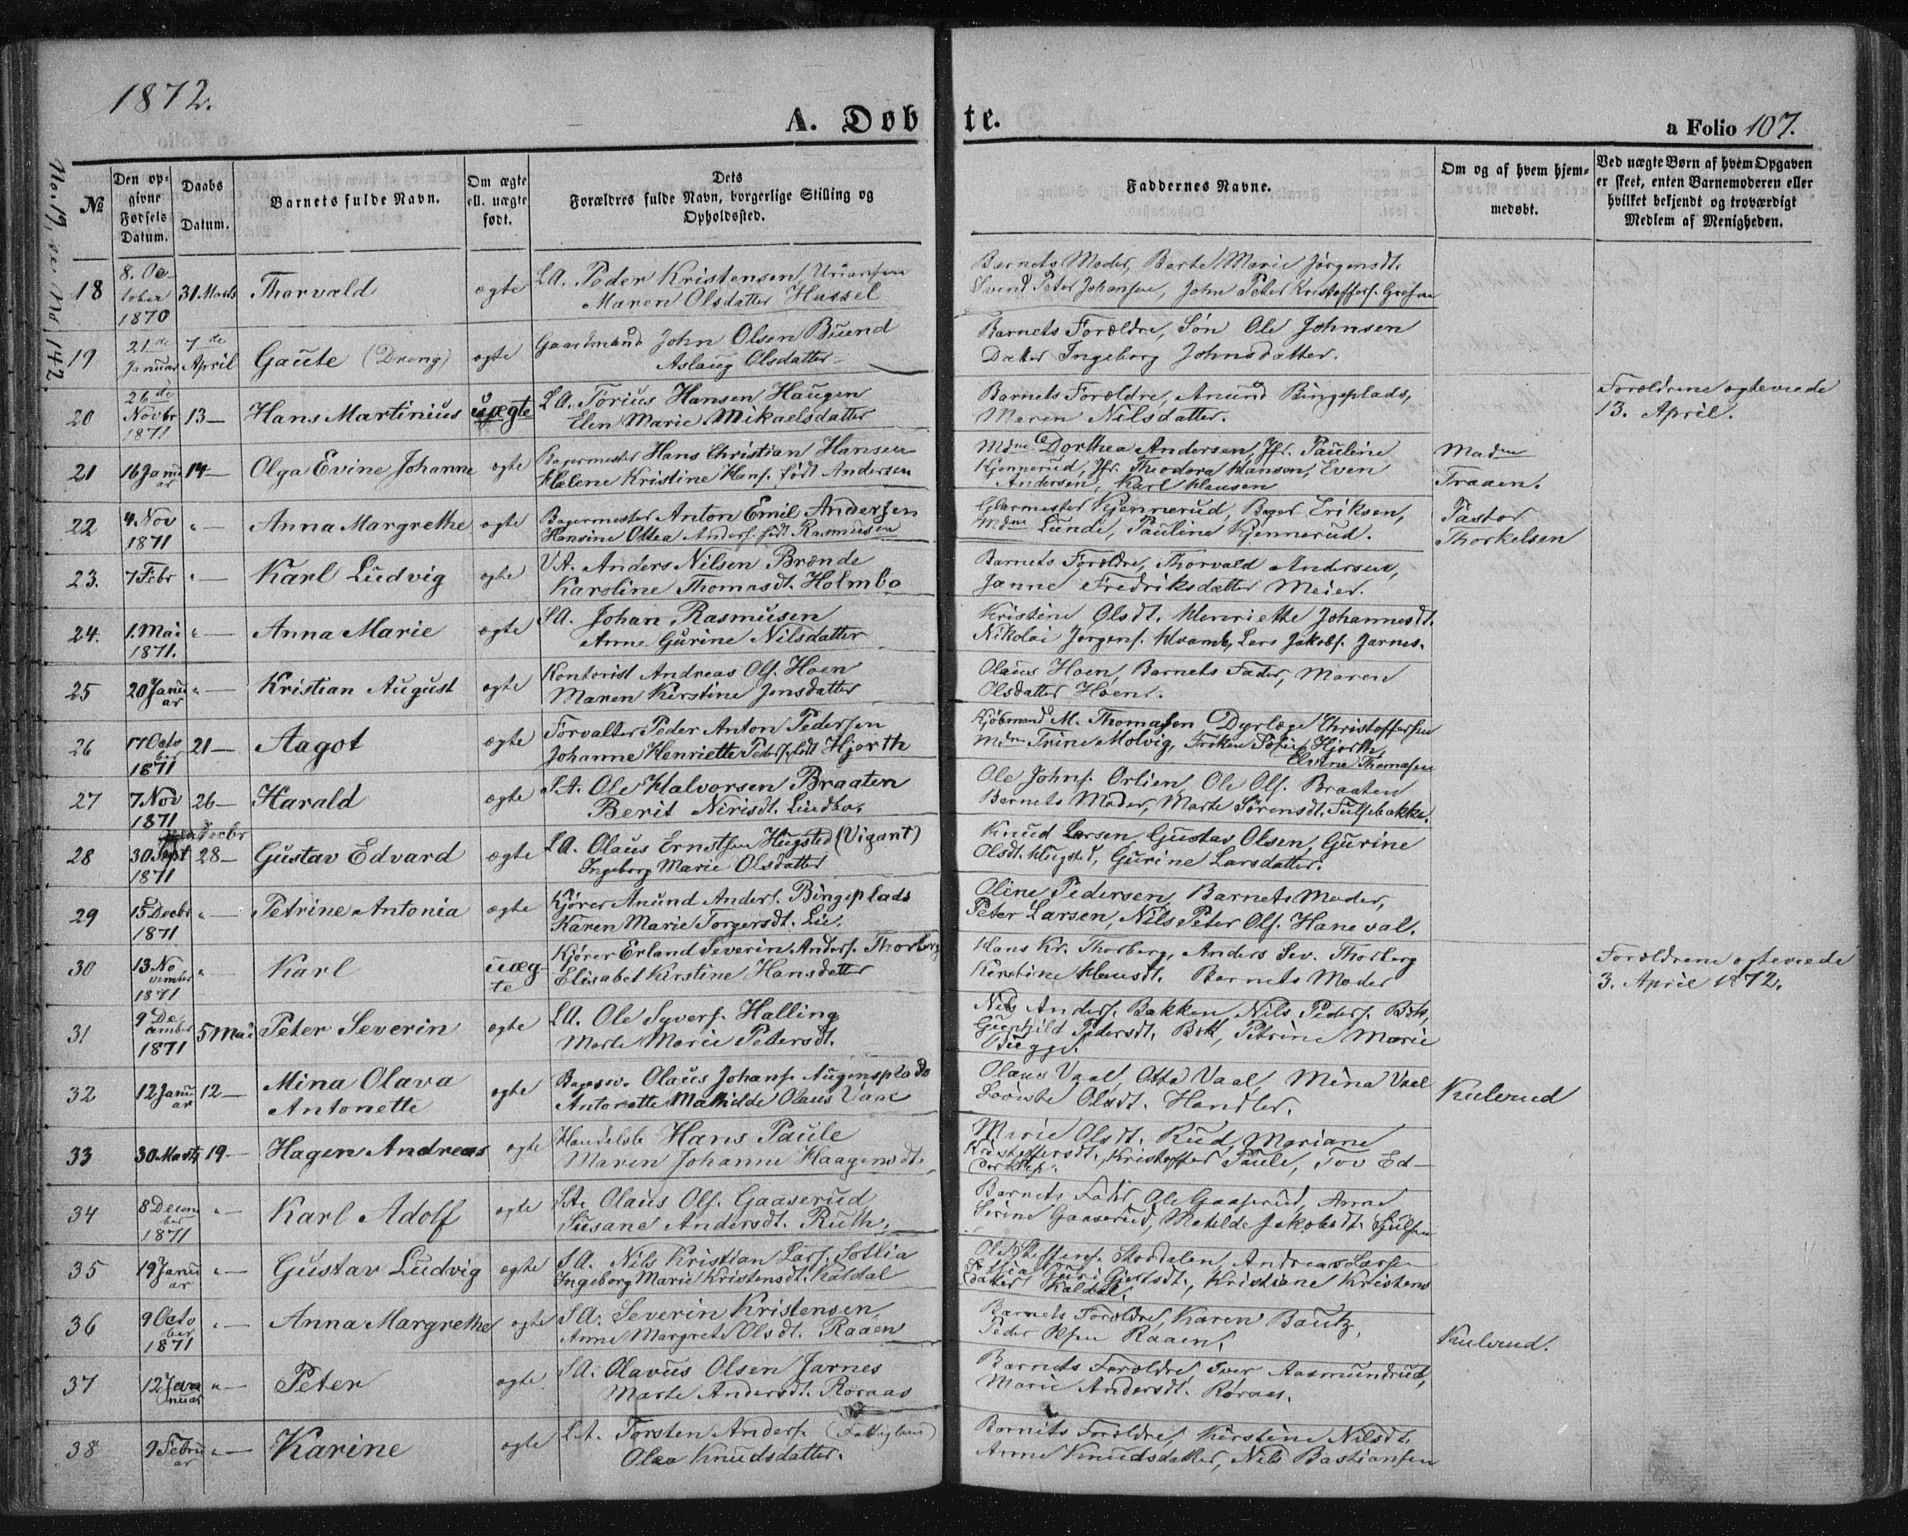 1872.
A. Døbte.
a Folio 107.
No. 19, se No 142.
№
Den opgivne Fødsels Datum.
Daabs Datum.
Barnets fulde Navn.
Om ægte ell. uægte født.
Dets Forældres fulde Navn, borgerlige Stilling og Opholdssted.
Faddernes Navne.
Om og af hvem hjemmedøbt.
Ved uægte Børn af hvem Opgaven er skeet, enten Barnemoderen eller hvilket bekjendt og troværdigt Medlem af Menigheden.
18 8. October 1870 31 Marts Thorvald ægte LA. Peder Kristensen
Maren Olsdatter Hassel
Barnets Moder, Berte Marie Jørgensdt.
Svend Peter Johansen, John Peter Kristoffers.
19 21de Januar 7de April Gaute (Dreng) ægte Gaardmand John Olsen Buind
Aslaug Olsdatter
Barnets Forældre, Søn Ole Johnsen
Datter Ingeborg Johnsdatter.
20 26de Novbr 1871 13 — Hans Martinius uægte LA. Torius Hansen Haugen
Elen Marie Mikaelsdatter
Barnets Forældre, Anund Bingeplads,
Maren Nilsdatter.
Forældrene ægteviede
13. April.
21 16 Januar 14 — Olga Evine Johanne ægte Bagermester Hans Christian Hansen
Helene Kristine Hans. født Andersen
Mdme Dorthea Andersen, Jfr. Pauline
Kjennerud, Jfr. Theodora Hansen, Even
Andersen, Karl Hansen
Madm
Traaen.
22 4 Nov 1871 " — Anna Margrethe ægte Bagermester Anton Emil Andersen
Hansine Ottea Anders. født Rasmusen
Glarmester Kjennerud, Bager Eriksen,
Mdme Lunde, Pauline Kjennerud.
Pastor
Thorkelsen
23. 7 Febr " — Karl Ludvig ægte Anders Nilsen Brænde
Karoline Thomasdt. Holmbo
Barnets Forældre, Thorvald Andersen,
Janne Fredriksdatter Meier.
24. 1. Mai 1871. " — Anna Marie ægte SA. Johan Rasmusen
Anne Gurine Nilsdatter
Kristine Olsdt. Henriette Johannesdt.
Nikolai Jørgens. Hvamb, Lars Jakobs. Jarnes.
25 20 Januar " — Kristian August ægte Kontorist Andreas Ols. Hoen
Maren Kirstine Jensdatter
Olaus Hoen, Barnets Fader, Maren
Olsdatter Hoen.
26 17 October 1871 21 — Aagot ægte Forvalter Peder Anton Pedersen
Johanne Henriette Peders. født Hjorth
Kjøbmand M. Thomasen Dyrlæge Christoffersen
Mdm Trine Molvig, Frøken Sofie Hjorth,
Elvine Thomasen
27 7 Nov 1871 26 — Harald ægte SA. Ole Halvorsen Braaten
Berit Nirisdt. Lindbo.
Ole Johns. Ørlien, Ole Ols. Braaten
Barnets Moder, Marte Sørensdt.
28 30 Decbr 1871 28 — Gustav Edvard ægte LA. Olaus Ernstsen Hugsted (Vigant)
Ingeborg Marie Olsdatter
Knud Larsen Gustav Olsen, Gurine
Olsdt. Hugsted, Gurine Larsdatter.
29 15 Decbr 1871 " Petrine Antonia ægte Kjører Anund Anders. Bingeplads
Karen Marie Torgersdt. Lie.
Oline Pedersen, Barnets Moder,
Peter Larsen, Nils Peter Ols. Haneval.
30 13 November 1871 " Karl uægte Kjører Erland Severin Anders. Thorberg
Elisabet Kirstine Hansdatter
Hans Kr. Thorberg, Anders Sev. Thorberg
Kirstine Hansdt. Barnets Moder
Forældrene ægteviede
3. April 1872.
31 9 December 1871 5 Mai Peter Severin ægte LA. Ole Syvers. Halling
Marte Marie Pedersdt.
Nils Anders. Bakken, Nils Peders. Bøk,
Gunhild Pedersdt. Bøk, Petrine Marie
32 12 Januar 12 — Mina Olava
Antonette ægte Olaus Johans. Augensplads
Antonette Mathilde Olaus Vaal
Olaus Vaal, Otto Vaal, Mina Vaal
Lovise Olsdt. Handler.
Kulerud
33 30 Marts 19 — Hagen Andreas ægte Handelsb. Hans Paule
Maren Johanne Haagensdt.
Marie Olsdt. Rud, Mariane
Kristoffersdt., Kristoffer Paule, Tov Ed-
34 8 December 1871 " — Karl Adolf ægte SA. Olaus Ols. Gaaserud
Susane Andersdt. Ruth.
Barnets Fader, Ole Gaaserud, Anne
Serine Gaaserud, Matilde Jakobsdt.
35 19 Januar " — Gustav Ludvig ægte SA. Nils Kristian Lars. Sotlia
Ingeborg Marie Kristensdt. Kaldal
Ole Steffens. Stordalen, Andreas Larsen
Sotlia, Guri Gjertsdt., Kristiane Kristens
datter Kaldal.
36 9 October 1871 " — Anna Margrethe ægte SA. Severin Kristensen
Anne Margrete Olsdt. Raaen
Barnets Forældre, Karen Bautz,
Peder Olsen Raaen.
Kulerud.
37 12 Januar " — Peter ægte SA. Olavus Olsen Jarnes
Marte Andersdt. Røraas
Barnets Forældre, Iver Aasmundrud,
Marie Andersdt. Røraas.
38 9 Februar " — Karine ægte LA. Torsten Anders. (Fattighus)
Olea Knudsdatter.
Barnets Forældre, Kirstine Nilsdt.
Anne Knudsdatter, Nils Bastiansen